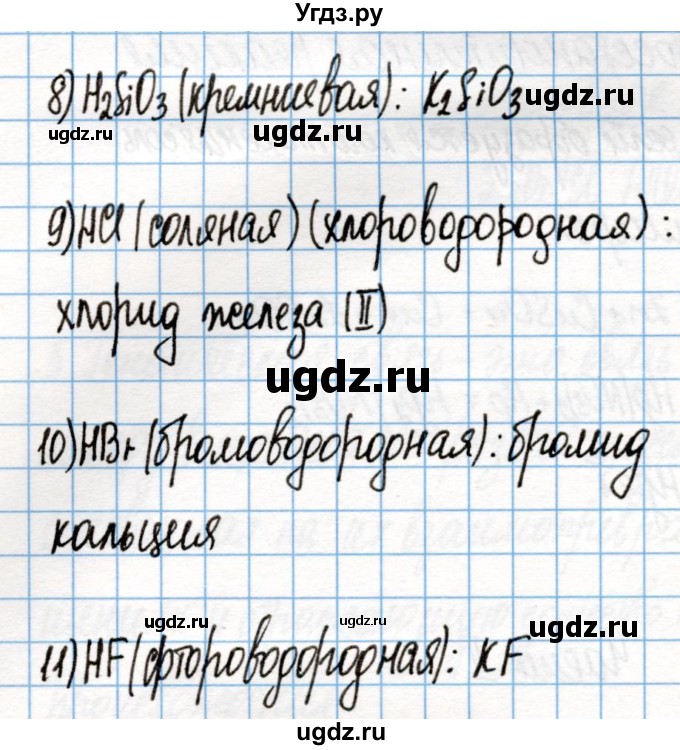 Угдз.ру
8) H₂SiO₃ (кремниевая): K₂SiO₃
ugdz.ru ugdz.ru ugdz.ru
9) HCl (соляная) (хлороводородная):
хлорид железа (II)
ugdz.ru
10) HBr (бромоводородная): бромид
кальция
ugdz.ru ugdz.ru ugdz.ru
11) HF (фтороводородная): KF
ugdz.ru